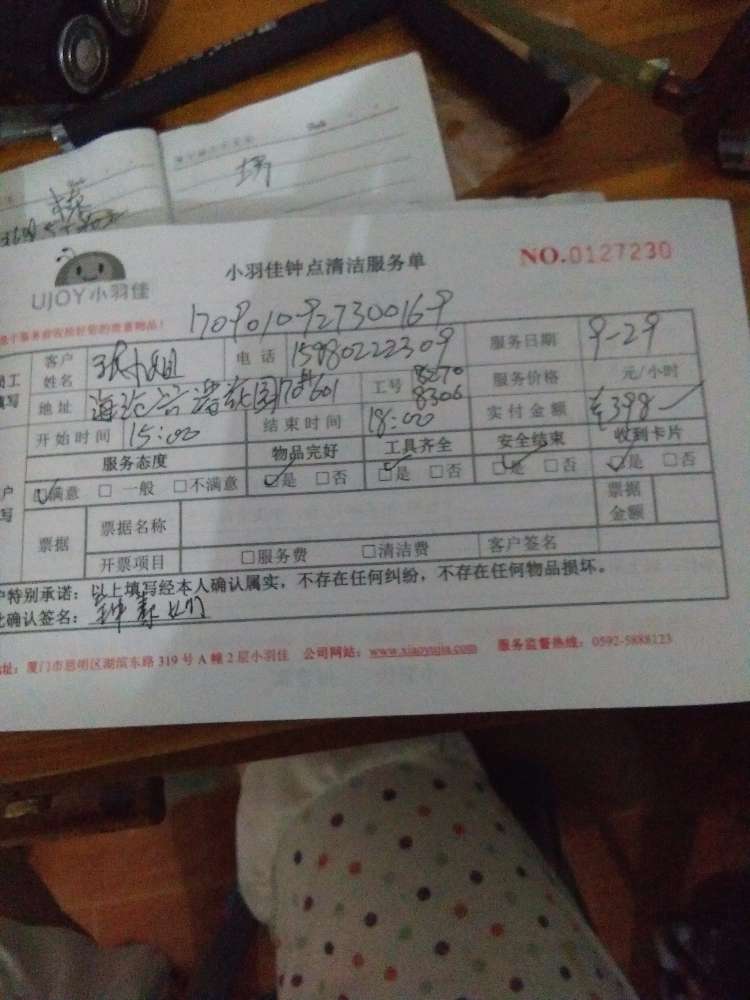 王秀
小羽佳钟点清洁服务单
NO.0127230
UJOY小羽佳
1709010927300169
客户姓名 张小姐 电话 15980222309 服务日期 9-29
地址 花园 70# 601 工号 8270 8306 服务价格 元/小时
开始时间 15:00 结束时间 18:00 实付金额 398
服务态度 物品完好 工具齐全 安全结束 收到卡片
☑满意 □一般 □不满意 ☑是 □否 ☑是 □否 ☑是 □否 ☑是 □否
票据 票据名称 票据金额
开票项目 □服务费 □清洁费 客户签名
户特别承诺：以上填写经本人确认属实，不存在任何纠纷，不存在任何物品损坏。
确认签名：
址：厦门市思明区湖滨东路 319 号 A 幢 2 层小羽佳 公司网站：www.xiaoyujia.com 服务监督热线：0592-5888123